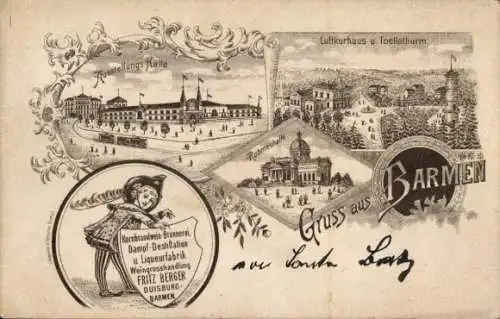 Ausstellungs-Halle
Luftkurhaus u. Toellethurm.
Ruhmeshalle
Gruss aus
BARMEN
Kornbrandwein-Brennerei,
Dampf-Destillation
u. Liqueurfabrik
Weingrosshandlung
FRITZ BERGER
DUISBURG-
BARMEN
von